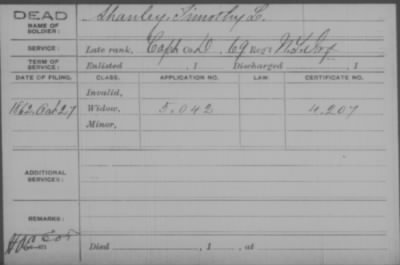 DEAD
NAME OF SOLDIER: Shanley, Timothy L.
SERVICE: Late rank, Capt Co. D, 69 Reg't N.Y. Inf
TERM OF SERVICE: Enlisted , 1 Discharged , 1
DATE OF FILING. CLASS. APPLICATION NO. LAW. CERTIFICATE NO.
Invalid,
1862, Oct 27 Widow, 5.042 4.207
Minor,
ADDITIONAL SERVICES:
REMARKS:
Died , 1 , at